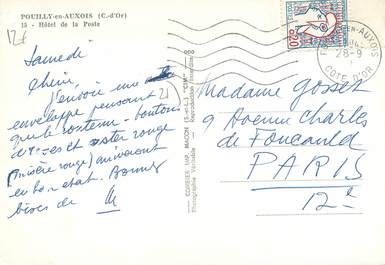 POUILLY-en-AUXOIS (C.-d'Or)
15 - Hôtel de la Poste
12f
Samedi
J'envoie une
enveloppe pensant
que le contenu - boutons
et aster rouge
(misère rouge) arriveront
en bon état. Bonnes
bises de
21
COMBIER IMP. MACON (S.-et-L.) "CIM"
Photographie Véritable
Reproduction interdite
POUILLY-EN-AUXOIS
28-9
COTE D'OR
Madame Gosset
9 Avenue Charles
de Foucauld
PARIS
12e